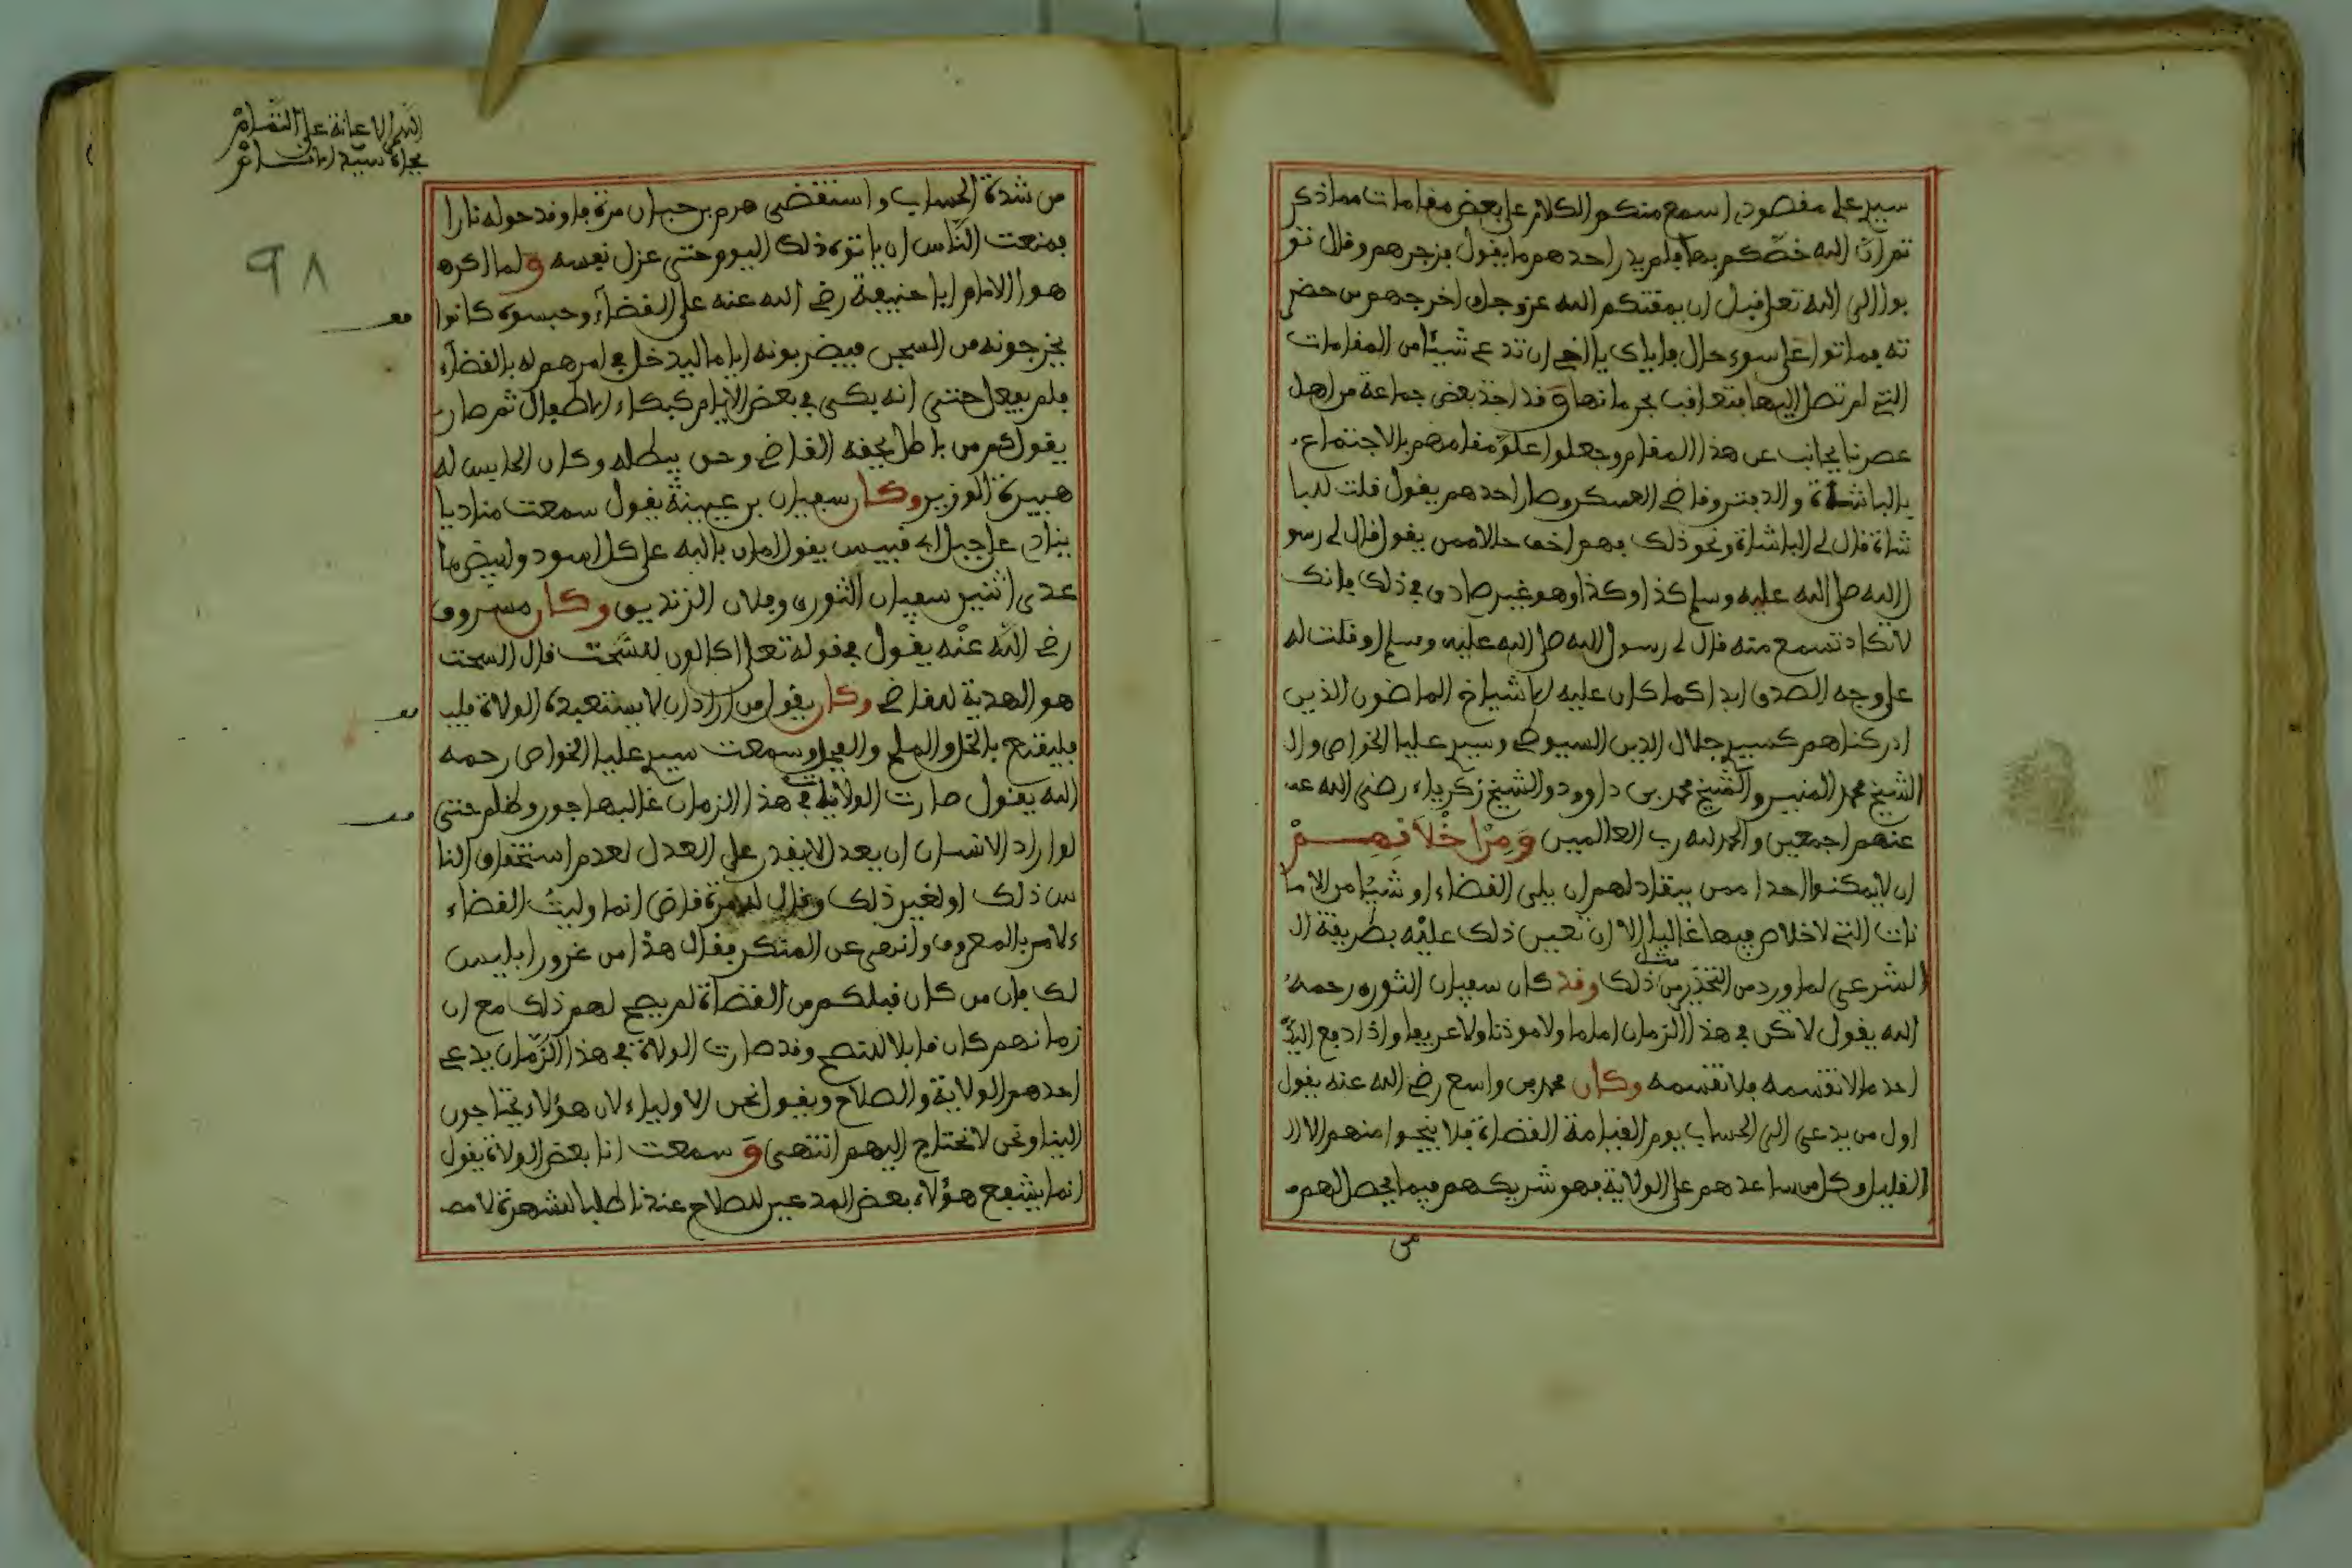 سيدي علي مقصودي اسمع منكم الكلام على بعض مقامات مما ذكر
تم ان الله خصكم بها فلم يدر احدهم ما يقول فزجرهم وقال تو
بوا الى الله تعلى قبل ان يمقتكم الله عز وجل واخرجهم من حضر
ته فماتوا على سوء حال فاياك يا اخي ان تدعي شيئا من المقامات
التي لم تصل اليها فتعاقب بحرمانها وقد اخذ بعض جماعة من اهل
عصرنا بجانب عن هذا المقام وجعلوا علو مقامهم بالاجتماع
بالباشاة والدفتر وقاضي العسكر وصار احدهم يقول قلت للبا
شاة قال لي الباشاة ونحو ذلك فهم اخف حالا ممن يقول قال لي رسو
ل الله صلى الله عليه وسلم كذا وكذا وهو غير صادق في ذلك فانك
لا تكاد تسمع منه قال لي رسول الله صلى الله عليه وسلم او قلت له
على وجه الصدق ابدا كما كان عليه الاشياخ الماضون الذين
ادركناهم كسيدي جلال الدين السيوطي وسيدي عليا الخواص وال
الشيخ محمد المنير والشيخ محمد بن داوود والشيخ زكرياء رضي الله عنـ
عنهم اجمعين والحمد لله رب العالمين وَمِنْ اخْلَاقِهِمْ
ان لا يمكنوا احدا ممن ينقاد لهم ان يلي القضاء او شيئا من الاما
نات التي لا خلاص فيها غالبا الا ان تعين ذلك عليه بطريقة ال
الشرعي لما ورد من التحذير من مثل ذلك وقد كان سفيان الثوري رحمه
الله يقول لا تكن في هذا الزمان اماما ولا موذنا ولا عريفا واذا دفع اليك
احد مالا تقسمه فلا تقسمه وكان محمد بن واسع رضي الله عنه يقول
اول من يدعى الى الحساب يوم القيامة القضاة فلا ينجوا منهم الا ال
القليل وكل من ساعدهم على الولاية فهو شريكهم فيما يحصل لهم
من
اللهم الاعانة على التمام
بجاه سيد الانام
٩٨
من شدة الحساب واستقضي هرم بن حيان مرة فاوقد حوله نارا
فمنعت الناس ان ياتوه ذلك اليوم حتى عزل نفسه ولما اكره
هوا الامام ابا حنيفة رضي الله عنه على القضاء وحبسوه كانوا
يخرجونه من السجن فيضربونه اياما ليدخل في امرهم له بالقضاء
فلم يفعل حتى انه بكى في بعض الايام كبكاء الاطفال ثم صار
يقول كم من باطل يحقه القاضي وحق يبطله وكان الحابس له
هبيرة الوزير وكان سفيان بن عيينة يقول سمعت مناديا
ينادي على جبل ابي قبيس يقول امان بالله على كل اسود وابيض ما
عدى اثنين سفيان الثوري وفلان الزنديق وكان مسروق
رضي الله عنه يقول في قوله تعلى اكالون للسحت قال السحت
هو الهدية للقاضي وكان يقول من اراد ان لا يستعبده الولاة فليـ
فليقنع بالخل والملح والفجل وسمعت سيدي عليا الخواص رحمه
الله يقول صارت الولايات في هذا الزمان غالبها جور وظلم حتى
لو اراد الانسان ان يعدل لا يقدر على العدل لعدم استحقاق النا
س ذلك او لغير ذلك وقال له مرة قاض انما وليت القضاء
ءلامر بالمعروف وانهى عن المنكر فقال هذا من غرور ابليس
لك فان من كان قبلكم من القضاة لم يصح لهم ذلك مع ان
زمانهم كان قابلا للنصح وقد صارت الولاة في هذا الزمان يدعي
احدهم الولاية والصلاح ويقول نحن الاولياء لان هؤلاء يحتاجون
الينا ونحن لا نحتاج اليهم انتهى وَ سمعت انا بعض الولاة يقول
انما يشفع هؤلاء بعض المدعين للصلاح عندنا طلبا للشهرة لا مصـ